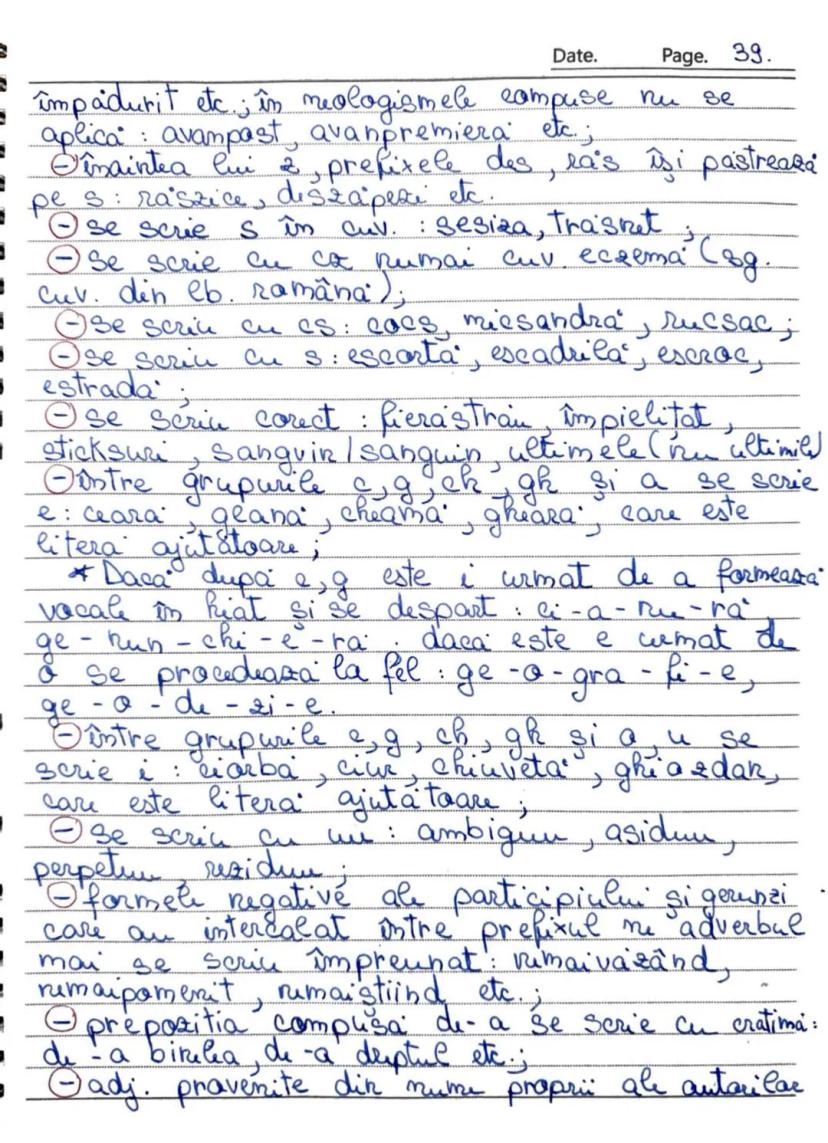 Date. Page. 39.
împădurit etc.; în neologismele compuse nu se
aplică : avampost, avanpremieră etc;
- înaintea lui z, prefixele des, răs își păstrează
pe s : răszice, deszăpezi etc.
- se scrie s în cuv. : sesiza, trăsnet ;
- se scrie cu cz numai cuv. eczemă (sg.
cuv. din lb. română);
- se scriu cu cs : cocs, micsandră, rucsac ;
- se scriu cu s : escortă, escadrilă, escroc,
estradă ;
- se scriu corect : fierăstrău, împielițat,
sticksuri, sangvin/sanguin, ultimele (nu ultimile)
- între grupurile c, g, ch, gh și a se scrie
e : ceară, geană, cheamă, gheară, care este
literă ajutătoare ;
* Dacă după c, g este i urmat de a formează
vocale în hiat și se despart : ci-a-nu-ră
ge-nun-chi-e-ră. dacă este e urmat de
o se procedează la fel : ge-o-gra-fi-e,
ge-o-de-zi-e.
- între grupurile c, g, ch, gh și o, u se
scrie i : ciorbă, ciur, chiuvetă, ghiozdan,
care este literă ajutătoare ;
- se scriu cu uu : ambiguu, asiduu,
perpetuu, reziduu ;
- formele negative ale participiului și gerunzi
care au intercalat între prefixul ne adverbul
mai se scriu împreunat : nemaivăzând,
nemaipomenit, nemaiștiind etc. ;
- prepoziția compusă de-a se scrie cu cratimă :
de-a birelea, de-a dreptul etc.;
- adj. provenite din nume proprii ale autorilor